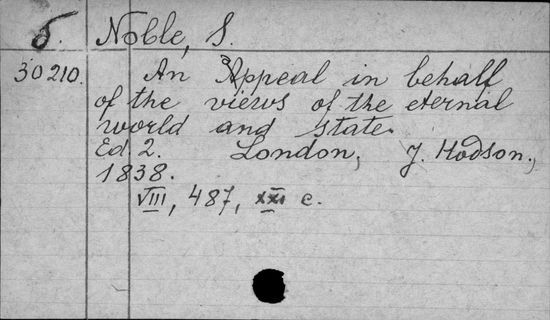 б. Noble, S.
30210. An Appeal in behalf
of the views of the eternal
world and state.
Ed. 2. London, J. Hodson.,
1838.
VIII, 487, XXI c.